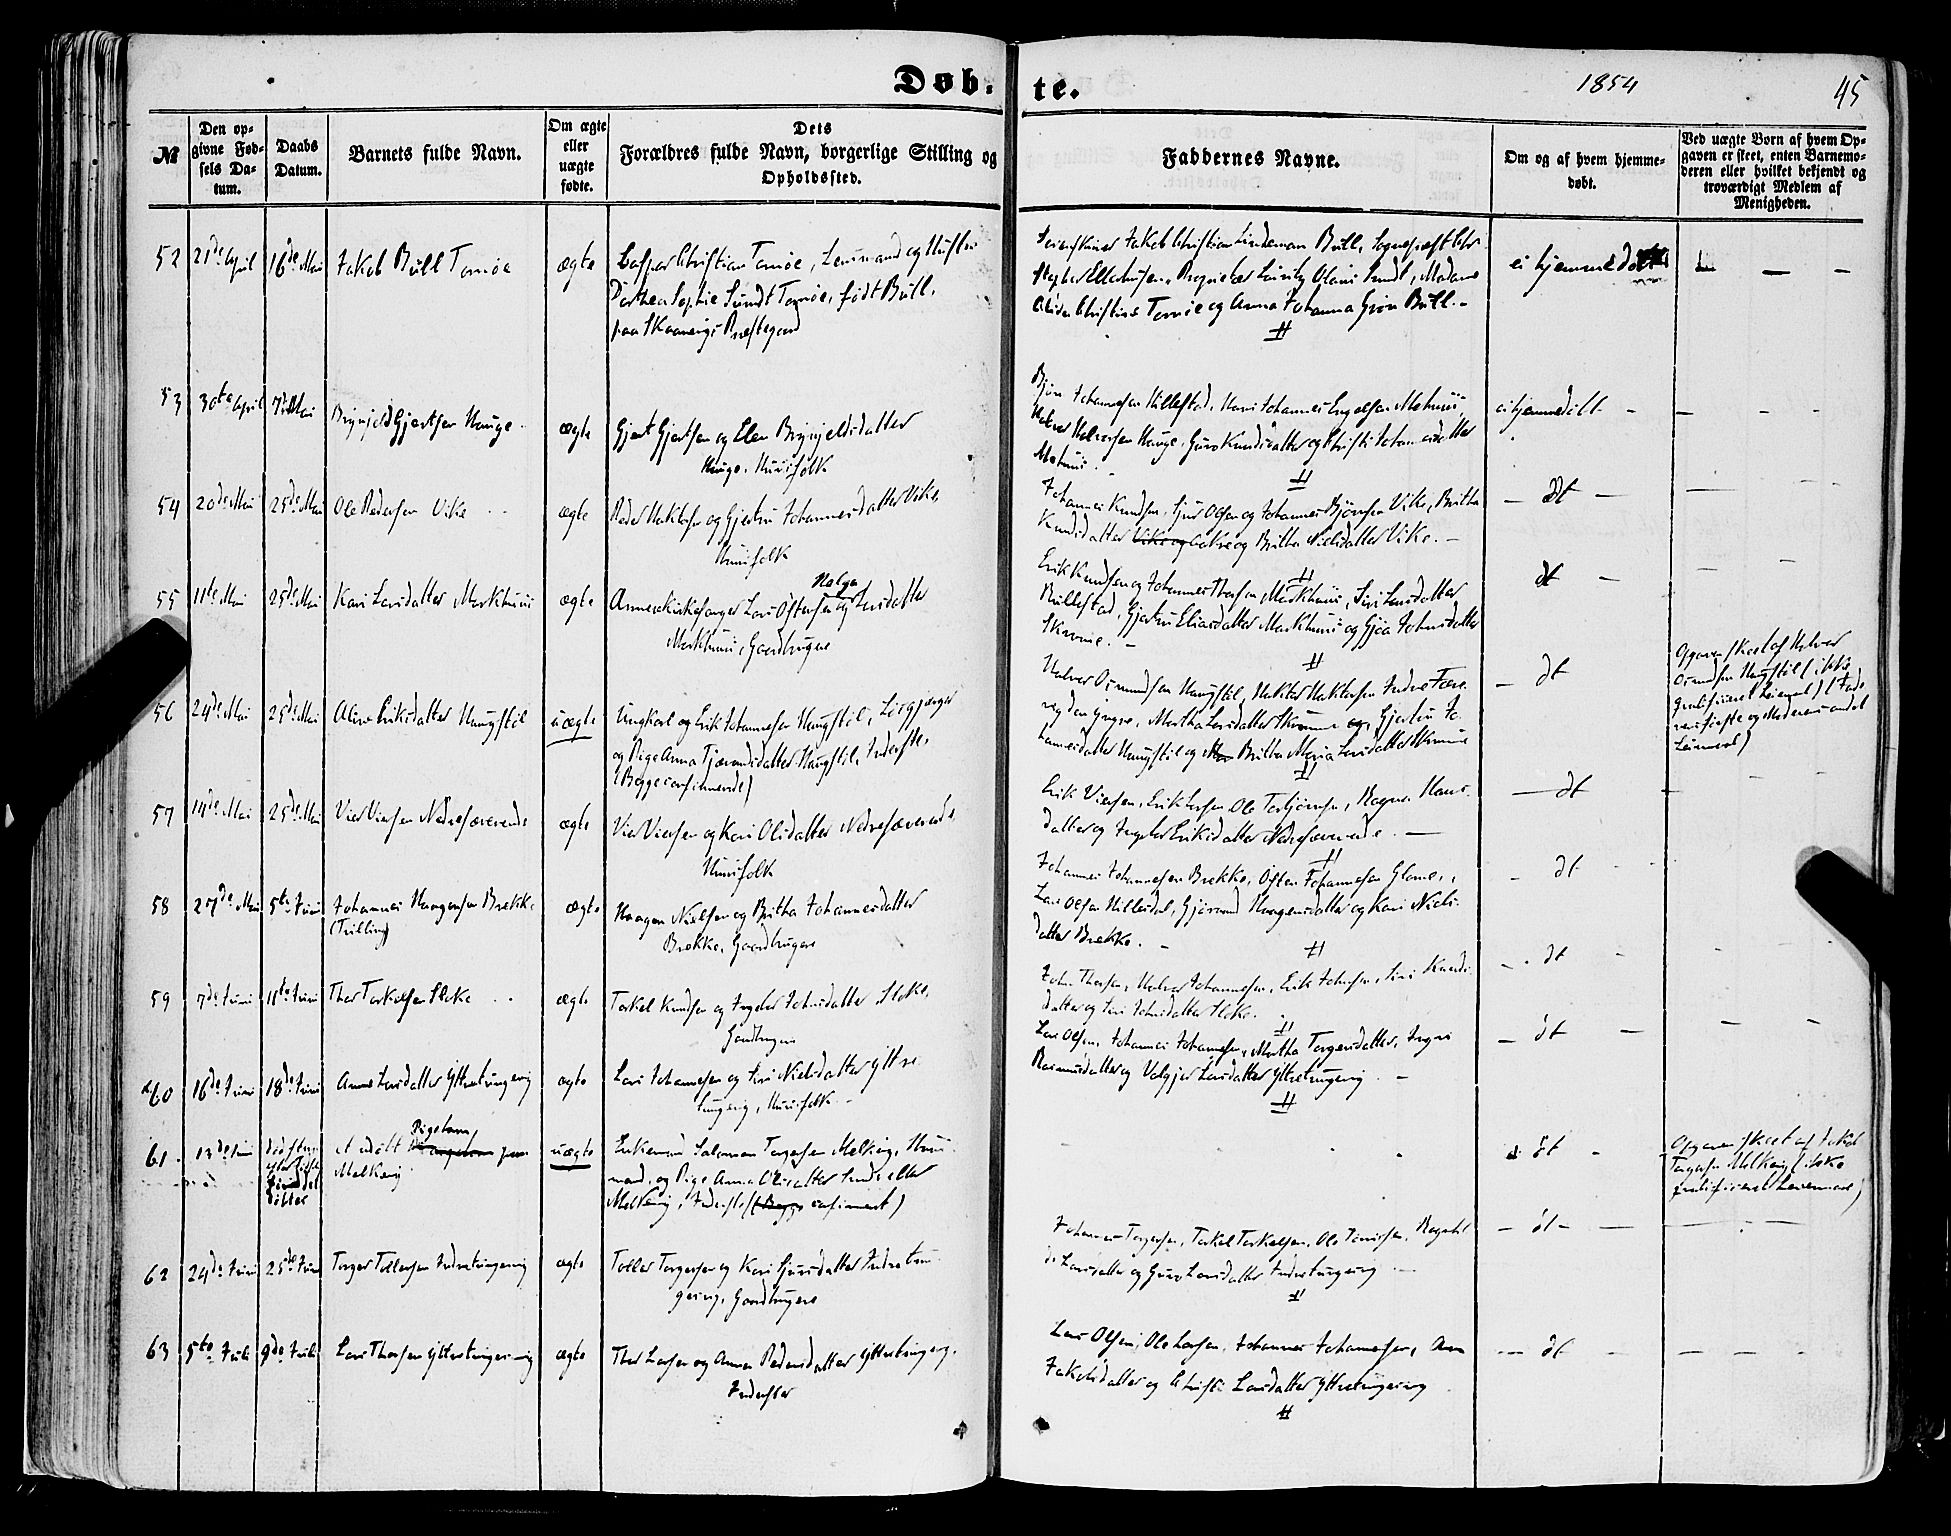 Døb-
te.
1854
45
№
Den op-
givne Fød-
sels Da-
tum.
Daabs
Datum.
Barnets fulde Navn.
Om ægte
eller
uægte
fødte.
Dets
Forældres fulde Navn, borgerlige Stilling og
Opholdssted.
Faddernes Navne.
Om og af hvem hjemme-
døbt.
Ved uægte Børn af hvem Op-
gaven er skeet, enten Barnemo-
deren eller hvilket bekjendt og
troværdigt Medlem af
Menigheden.
52
21de April
16de Mai
Jakob Bull Tornøe
ægte
Christian Tornøe, Lensmand og Hustru
Dorthea Sophie Sundt Tornøe, født Bull,
paa Skaanevigs Præstegaard
Jakob Christian Lindeman Bull, Sognepræst
Ellertsen, Proprietær Sundt, Madame
Christine Tornøe og Anna Johanna Grøn Bull.
ei hjemmedøbt
53
30te April
7de Mai
Brynjeld Gjertsen Hauge
ægte
Gjert Gjertsen og Elen Brynjeldsdatter
Hauge. Huusfolk
Bjørn Johannesen Millestad, Johannes Engelsen
Halvor Halvorsen Hauge, Guro Knudsdatter og Christi Johannesdatter
ei hjemmedøbt
54
20de Mai
25de Mai
Ole Pedersen Vike
ægte
Peder Nektorsen og Gjertru Johannesdatter Vike,
Huusfolk
Johannes Knudsen, Sjur Olsen og Johannes Bjørnsen Vike, Britha
Knudsdatter og Britha Nielsdatter Vike.
dt
55
11te Mai
25de Mai
Kari Larsdatter Markhuus
ægte
Annexkirkesanger Lars Østensen og Helga Larsdatter
Markhuus, Gaardbrugere
Erik Knudsen og Johannes Thorsen Markhuus, Siri Larsdatter
Rullestad, Gjertru Eliasdatter Markhuus og Gjøa Johnsdatter
Skromme.
dt
56
24de Mai
25de Mai
Alive Eriksdatter Haugstøl
uægte
Ungkarl og Erik Johannesen Haugstøl,
og Pige Anna Tjærandsdatter Haugstøl, Inderste,
(Begge confirmerede)
Halvor Osmundsen Haugstøl, Nektor Nektorsen Indre
den yngre, Martha Larsdatter Skromme Gjertru Jo-
hannesdatter Haugstøl og Britha Maria Larsdatter Skromme
dt
Opgaven skeet af Halvor
Osmundsen Haugstøl (ikke
qvalificeret Leiermaal) (Fade-
rens første og Moderens andet
Leiermaal)
57
14de Mai
25de Mai
Vier Viersen Nedrefæverende
ægte
Vier Viersen og Kari Olsdatter Nedrefæverende,
Huusfolk
Erik Viersen, Erik Larsen, Ole Torbjørnsen, Ragna Hans-
datter og Ingebor Eriksdatter Nedrefæverende.
dt
58
27de Mai
5te Juni
Johannes Haagensen Brekke
(Tvilling)
ægte
Haagen Nielsen og Britha Johannesdatter
Brekke, Gaardbrugere
Johannes Johannesen Brekke, Østen Johannesen
Lars Olsen Milledal, Gjørond Haagensdatter og Kari Niels-
datter Brekke.
dt
59
7de Juni
11te Juni
Thor Torkelsen Fleke
ægte
Torkel Knudsen og Ingebor Johnsdatter Fleke,
Gaardbrugere
John Thorsen, Halvor Johannesen, Erik Johnsen, Siri Knuds-
datter og Siri Johnsdatter Fleke.
dt
60
16de Juni
18de Juni
Anna Larsdatter Yttretungesvig
ægte
Lars Johannesen og Siri Nielsdatter Yttre
tungesvig, Huusfolk
Lars Olsen, Johannes Johannesen, Martha Torgersdatter, Ingri
Rasmusdatter og Valgjer Larsdatter Yttretungesvig.
dt
61
13de Juni
et udøbt Pigebarn fra
Melkevig
uægte
Enkemand Salomon Torgersen Melkevig, Huus-
mand, og Pige Anna Olsdatter
Melkevig, Inderste (Begge confirmeret)
dt
Opgaven skeet af Jakob
Torgersen Melkevig (ikke
qvalificeret Leiermaal)
62
24de Juni
25de Juni
Torger Tollersen Indretungesvig
ægte
Toller Torgersen og Kari Sjursdatter Indretun-
gesvig, Gaardbrugere
Johannes Torgersen, Torkel Torkelsen, Ole Tørrissen, Ragnhil-
de Larsdatter og Guro Larsdatter Indretungesvig
dt
63
5te Juli
9de Juli
Lars Thorsen Yttretungesvig
ægte
Thor Larsen og Anna Pedersdatter Yttretungesvig,
Inderster
Lars Olsen, Ole Larsen, Johannes Johannesen, Anna
Jakobsdatter og Christi Larsdatter Yttretungesvig
dt